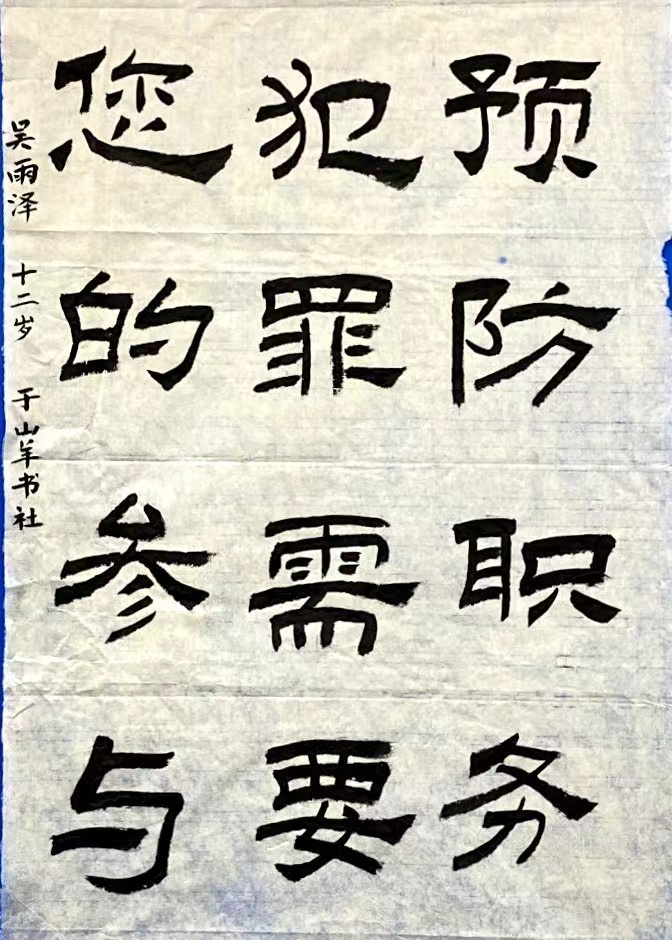 预防职务
犯罪需要
您的参与
吴雨泽 十二岁 于山羊书社